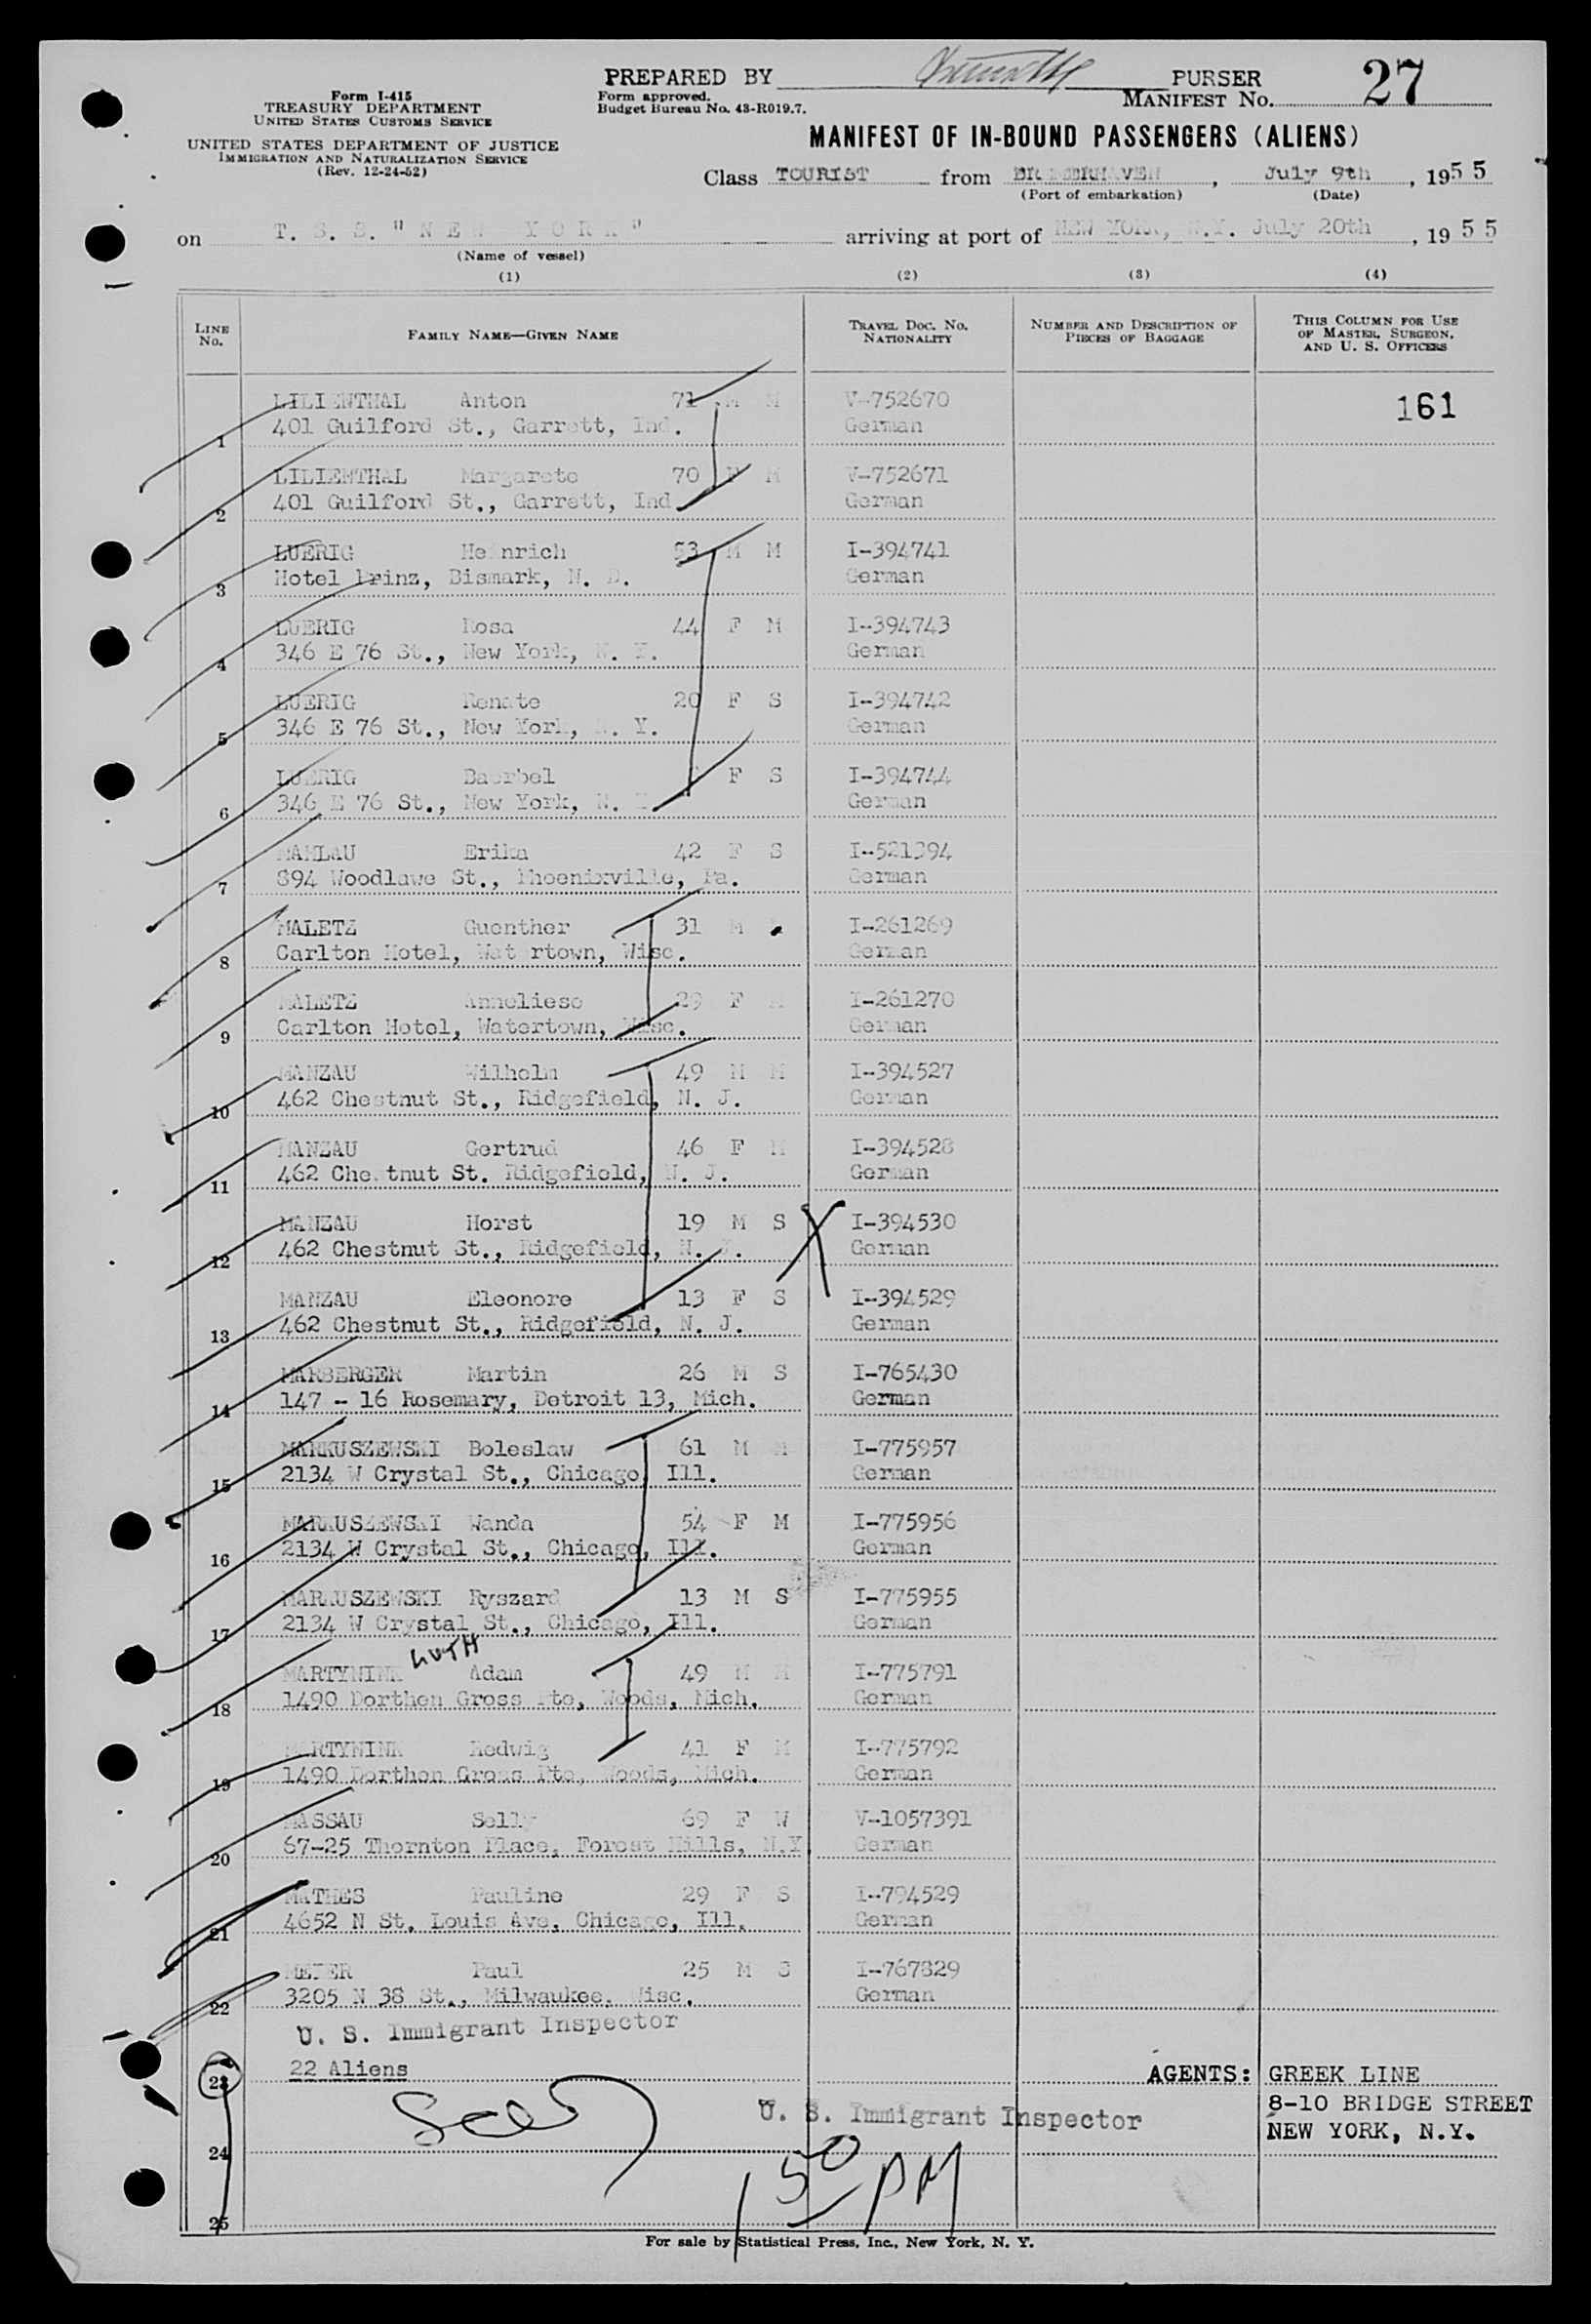 PREPARED BY PURSER
Form I-415
TREASURY DEPARTMENT
UNITED STATES CUSTOMS SERVICE
UNITED STATES DEPARTMENT OF JUSTICE
IMMIGRATION AND NATURALIZATION SERVICE
(Rev. 12-24-52)
Form approved.
Budget Bureau No. 43-R019.7.
MANIFEST No. 27
MANIFEST OF IN-BOUND PASSENGERS (ALIENS)
Class TOURIST from BREMERHAVEN, July 9th, 1955
(Port of embarkation) (Date)
on T. S. S. "NEW YORK" arriving at port of NEW YORK, N.Y. July 20th, 1955
(Name of vessel)
(1) (2) (3) (4)
LINE No. FAMILY NAME—GIVEN NAME TRAVEL DOC. No. NATIONALITY NUMBER AND DESCRIPTION OF PIECES OF BAGGAGE THIS COLUMN FOR USE OF MASTER, SURGEON, AND U. S. OFFICERS
LILIENTHAL Anton 71 M M V-752670 161
1 401 Guilford St., Garrett, Ind. German
LILIENTHAL Margarete 70 F M V-752671
2 401 Guilford St., Garrett, Ind German
LUERIG Heinrich 53 M M I-394741
3 Hotel Prinz, Bismark, N. D. German
LUERIG Rosa 44 F M I-394743
4 346 E 76 St., New York, N. Y. German
LUERIG Renate 20 F S I-394742
5 346 E 76 St., New York, N. Y. German
LUERIG Baerbel F S I-394744
6 346 E 76 St., New York, N. Y German
MAHLAU Erika 42 F S I-521394
7 894 Woodlawe St., Phoenixville, Pa. German
MALETZ Guenther 31 M I-261269
8 Carlton Hotel, Wat rtown, Wisc. German
MALETZ Anneliese 29 F M I-261270
9 Carlton Hotel, Watertown, Wisc. German
MANZAU Wilhelm 49 M M I-394527
10 462 Chestnut St., Ridgefield, N. J. German
MANZAU Gertrud 46 F M I-394528
11 462 Chestnut St. Ridgefield, N. J. German
MANZAU Horst 19 M S X I-394530
12 462 Chestnut St., Ridgefield, N. J. German
MANZAU Eleonore 13 F S I-394529
13 462 Chestnut St., Ridgefield, N. J. German
MARBERGER Martin 26 M S I-765430
14 147 - 16 Rosemary, Detroit 13, Mich. German
MARKUSZEWSKI Boleslaw 61 M M I-775957
15 2134 W Crystal St., Chicago, Ill. German
MARKUSZEWSKI Wanda 54 F M I-775956
16 2134 W Crystal St., Chicago, Ill. German
MARKUSZEWSKI Ryszard 13 M S I-775955
17 2134 W Crystal St., Chicago, Ill. German
LUTH
MARTYNINK Adam 49 M M I-775791
18 1490 Dorthen Gross Pte, Woods, Mich. German
MARTYNINK Hedwig 41 F M I-775792
19 1490 Dorthen Gross Pte, Woods, Mich. German
MASSAU Selly 69 F W V-1057391
20 67-25 Thornton Place, Forest Hills, N.Y German
MATHES Pauline 29 F S I-794529
21 4652 N St. Louis Ave, Chicago, Ill. German
MEYER Paul 25 M S I-767829
22 3205 N 38 St., Milwaukee, Wisc. German
U. S. Immigrant Inspector
23 22 Aliens AGENTS: GREEK LINE
8-10 BRIDGE STREET
U. S. Immigrant Inspector
NEW YORK, N.Y.
24
150 PM
25
For sale by Statistical Press, Inc., New York, N. Y.